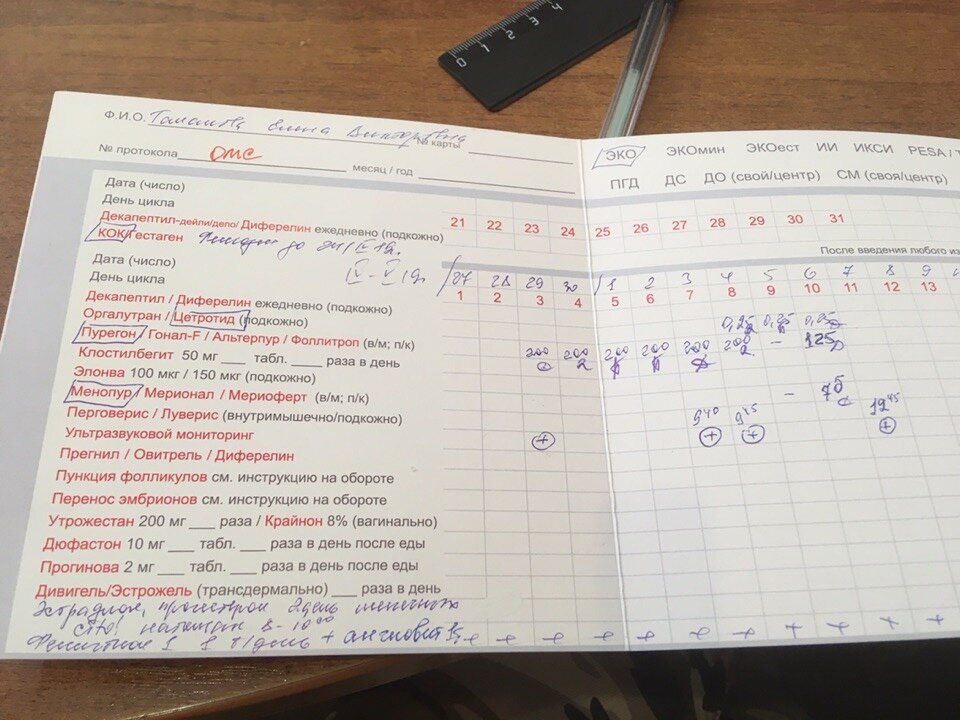 0 1 2 3 4
Ф.И.О. Елена Викторовна № карты
№ протокола ОМС месяц / год
ЭКО ЭКОмин ЭКОест ИИ ИКСИ PESA / T
ПГД ДС ДО (свой/центр) СМ (своя/центр)
Дата (число)
День цикла
Декапептил-дейли/депо/ Диферелин ежедневно (подкожно) 21 22 23 24 25 26 27 28 29 30 31
КОК/Гестаген до
После введения любого из
Дата (число) IV - V 27 28 29 30 1 2 3 4 5 6 7 8 9
День цикла 1 2 3 4 5 6 7 8 9 10 11 12 13
Декапептил / Диферелин ежедневно (подкожно)
Оргалутран / Цетротид (подкожно) 0,25 0,25 0,25
Пурегон / Гонал-F / Альтерпур / Фоллитроп (в/м; п/к) 200 200 200 200 200 200 - 125
Клостилбегит 50 мг ___ табл. ___ раза в день
Элонва 100 мкг / 150 мкг (подкожно)
Менопур / Мерионал / Мериоферт (в/м; п/к) - 75
Перговерис / Луверис (внутримышечно/подкожно) 9 40 9 45 12 45
Ультразвуковой мониторинг + + + +
Прегнил / Овитрель / Диферелин
Пункция фолликулов см. инструкцию на обороте
Перенос эмбрионов см. инструкцию на обороте
Утрожестан 200 мг ___ раза / Крайнон 8% (вагинально)
Дюфастон 10 мг ___ табл. ___ раза в день после еды
Прогинова 2 мг ___ табл. ___ раза в день после еды
Дивигель/Эстрожель (трансдермально) ___ раза в день
Эстрадиол, прогестерон 2 день
натощак 8 - 10 00
1 т/день + ангиовит + + + + + + + + + + + + +